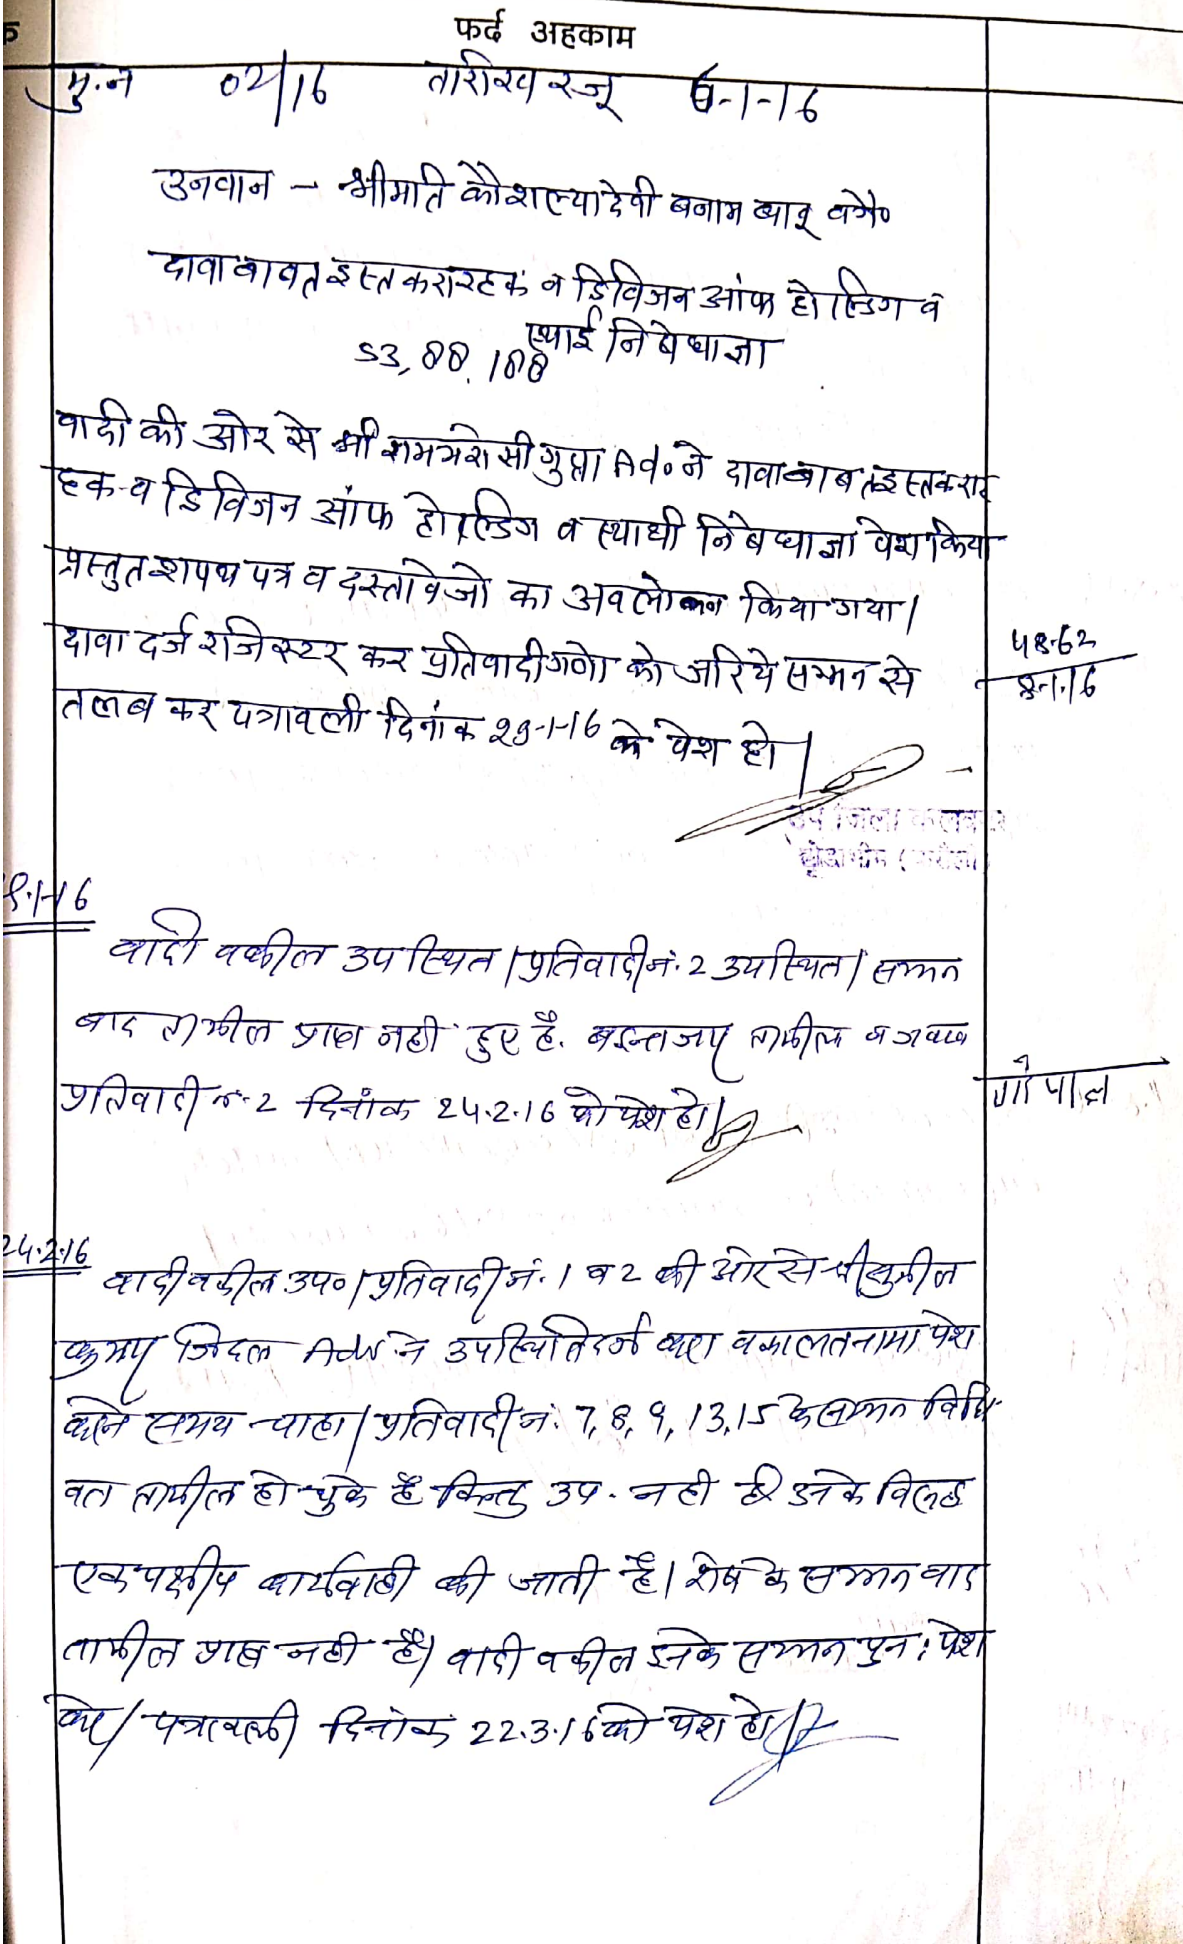 फर्द अहकाम
मु.न 02/16 तारीख रजू 6-1-16
उनवान - श्रीमति कौशल्यादेवी बनाम बाबू वगै०
दावा बावत इस्तकरारहक व डिविजन आंफ होल्डिग व
स्थाई निषेधाज्ञा
53, 88, 188
वादी की ओर से श्री रामभरोसी गुप्ता Ad० ने दावा बाबत इस्तकरार
हक व डिविजन आंफ होल्डिग व स्थायी निषेधाज्ञा पेश किया
प्रस्तुत शपथ पत्र व दस्तावेजो का अवलोकन किया गया।
दावा दर्ज रजिस्टर कर प्रतिवादीगणो को जरिये सम्मन से
तलब कर पत्रावली दिनांक 29-1-16 को पेश हो।
48-62
8-1-16
उप जिला कलक्टर
टोडाभीम (करौली)
9.1-16
वादी वकील उपस्थित। प्रतिवादी नं. 2 उपस्थित। सम्मन
बाद तामील प्राप्त नही हुए है. बइन्तजार तामील व जवाब
प्रतिवादी नं. 2 दिनांक 24.2.16 को पेश हो।
गोपाल
24.2.16
वादी वकील उप०। प्रतिवादी नं. 1 व 2 की ओर से श्री सुनील
कुमार जिंदल Adv ने उपस्थिति दर्ज करा वकालतनामा पेश
करने समय चाहा। प्रतिवादी नं. 7, 8, 9, 13, 15 के सम्मन विधि
वत तामील हो चुके है किन्तु उप. नही है उनके विरूद्ध
एकपक्षीय कार्यवाही की जाती है। शेष के सम्मन बाद
तामील प्राप्त नही है। वादी वकील इनके सम्मन पुन: पेश
करे। पत्रावली दिनांक 22.3.16 को पेश हो।